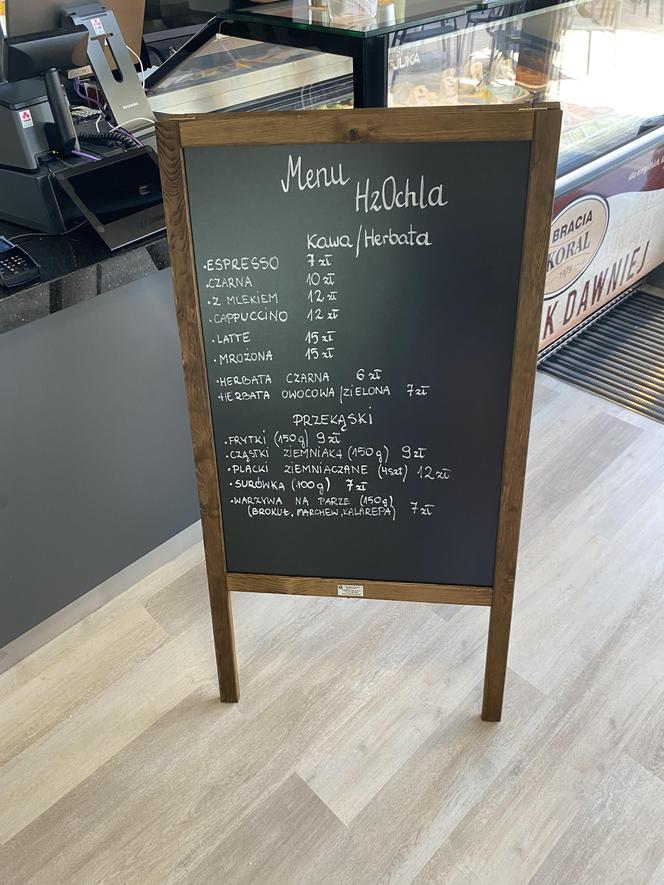 Menu
H2Ochla
Kawa/Herbata
•ESPRESSO 7 zł
•CZARNA 10 zł
•Z MLEKIEM 12 zł
•CAPPUCCINO 12 zł
•LATTE 15 zł
•MROŻONA 15 zł
•HERBATA CZARNA 6 zł
•HERBATA OWOCOWA/ZIELONA 7zł
PRZEKĄSKI
•FRYTKI (150g) 9zł
•CZĄSTKI ZIEMNIAKA (150g) 9zł
•PLACKI ZIEMNIACZANE (4szt) 12zł
•SURÓWKA (100g) 7zł
•WARZYWA NA PARZE (150g)
(BROKUŁ, MARCHEW, KALAREPA) 7zł
BRACIA
KORAL
1979
K DAWNIEJ